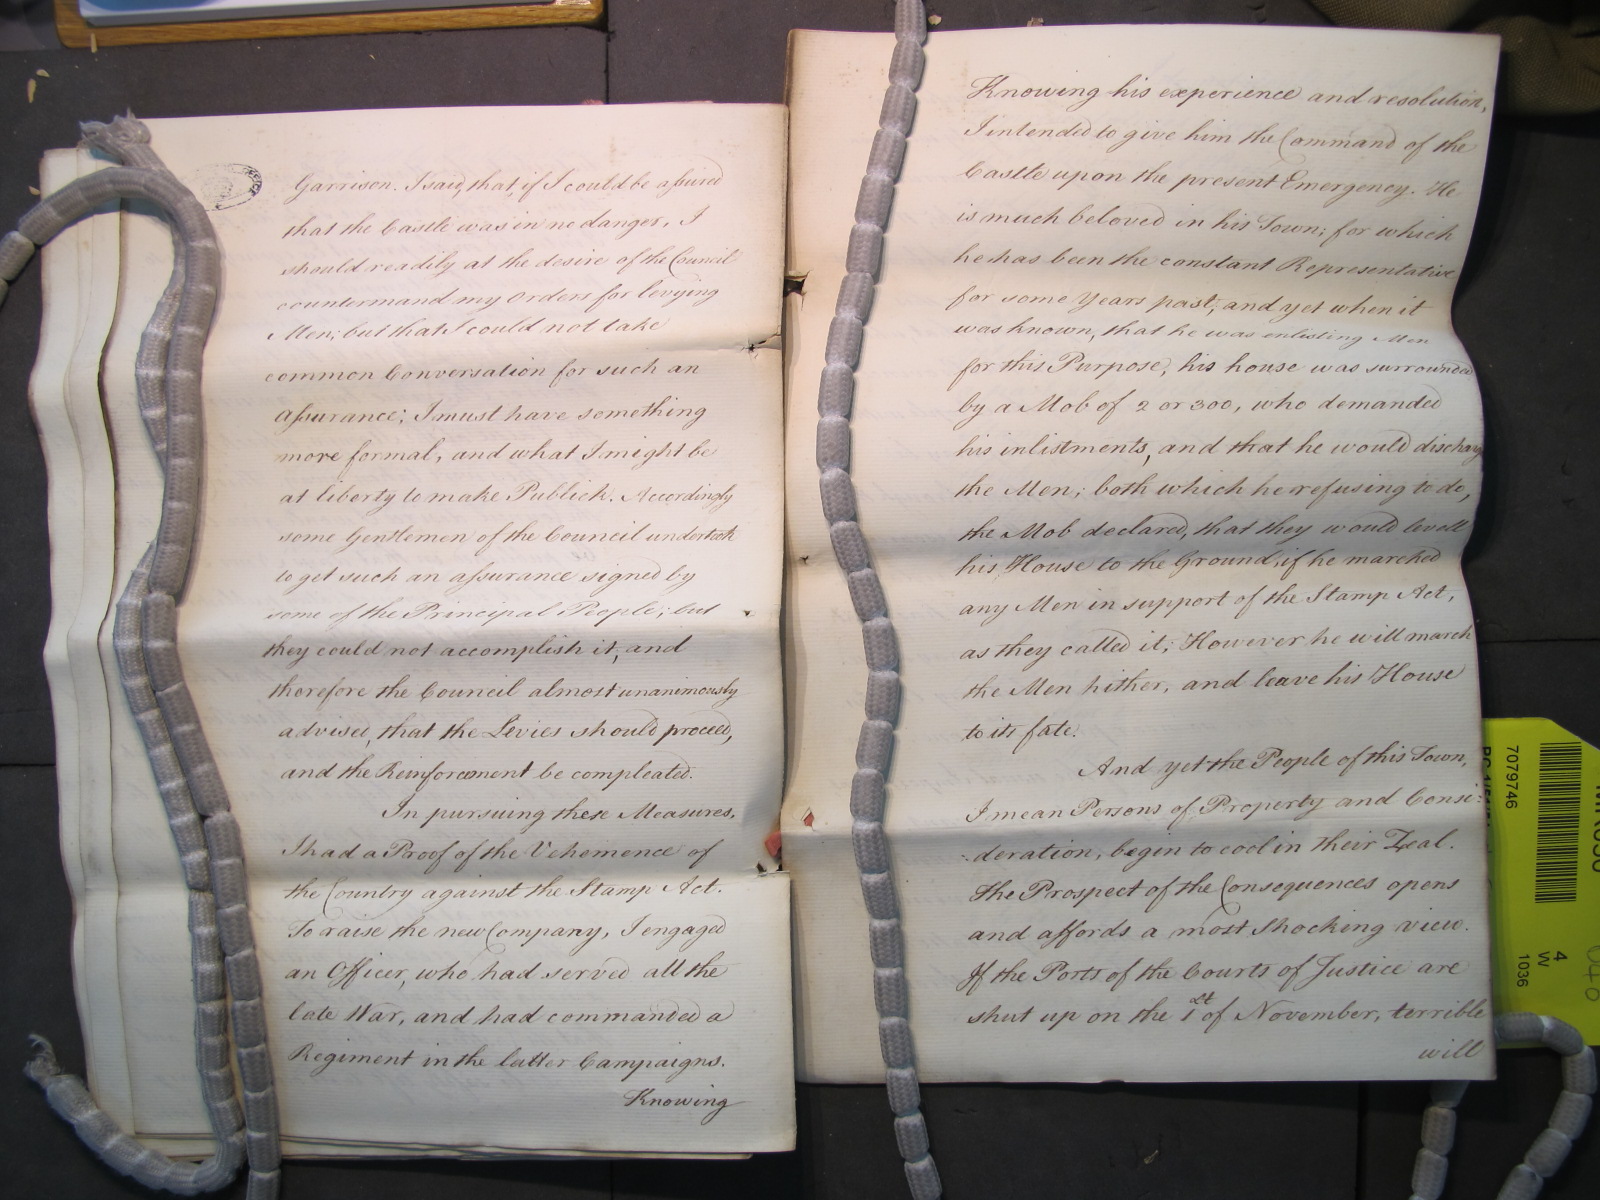 Garrison. I said, that, if I could be assured
that the Castle was in no danger, I
should readily at the desire of the Council
countermand my Orders for levying
Men; but that I could not take
common Conversation for such an
assurance; I must have something
more formal, and what I might be
at liberty to make Publick. Accordingly
some Gentlemen of the Council undertook
to get such an assurance signed by
some of the Principal People; but
they could not accomplish it, and
therefore the Council almost unanimously
advised, that the Levies should proceed,
and the Reinforcement be compleated.
In pursuing these Measures,
I had a Proof of the Vehemence of
the Country against the Stamp Act.
To raise the new Company, I engaged
an Officer, who had served all the
late War, and had commanded a
Regiment in the latter Campaigns.
Knowing
Knowing his experience and resolution,
I intended to give him the Command of the
Castle upon the present Emergency. He
is much beloved in his Town; for which
he has been the constant Representative
for some Years past; and yet when it
was known, that he was enlisting Men
for this Purpose, his house was surrounded
by a Mob of 2 or 300, who demanded
his inlistments, and that he would discharg
the Men; both which he refusing to do,
the Mob declared, that they would levell
his House to the Ground, if he marched
any Men in support of the Stamp Act,
as they called it; However he will march
the Men hither, and leave his House
to its fate.
And yet the People of this Town,
I mean Persons of Property and Consi-
-deration, begin to cool in their Zeal.
The Prospect of the Consequences opens
and affords a most shocking view.
If the Ports of the Courts of Justice are
shut up on the 1st of November, terrible
will
7079746
4
W
1036